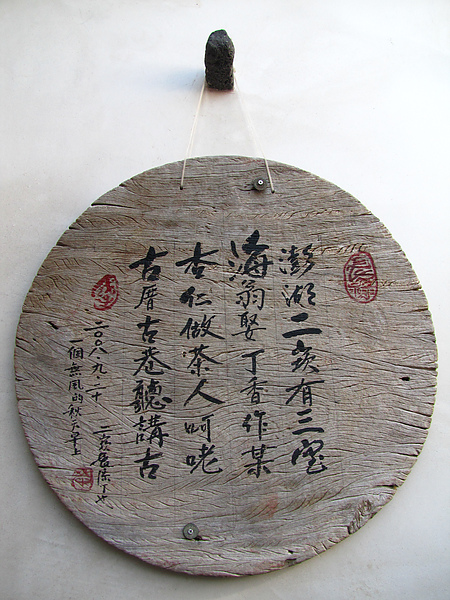 澎湖二崁有三寶
海翁娶丁香作某
杏仁做茶人呵咾
古厝古巷聽講古
二〇〇八九、二十
一個無風的秋天早上